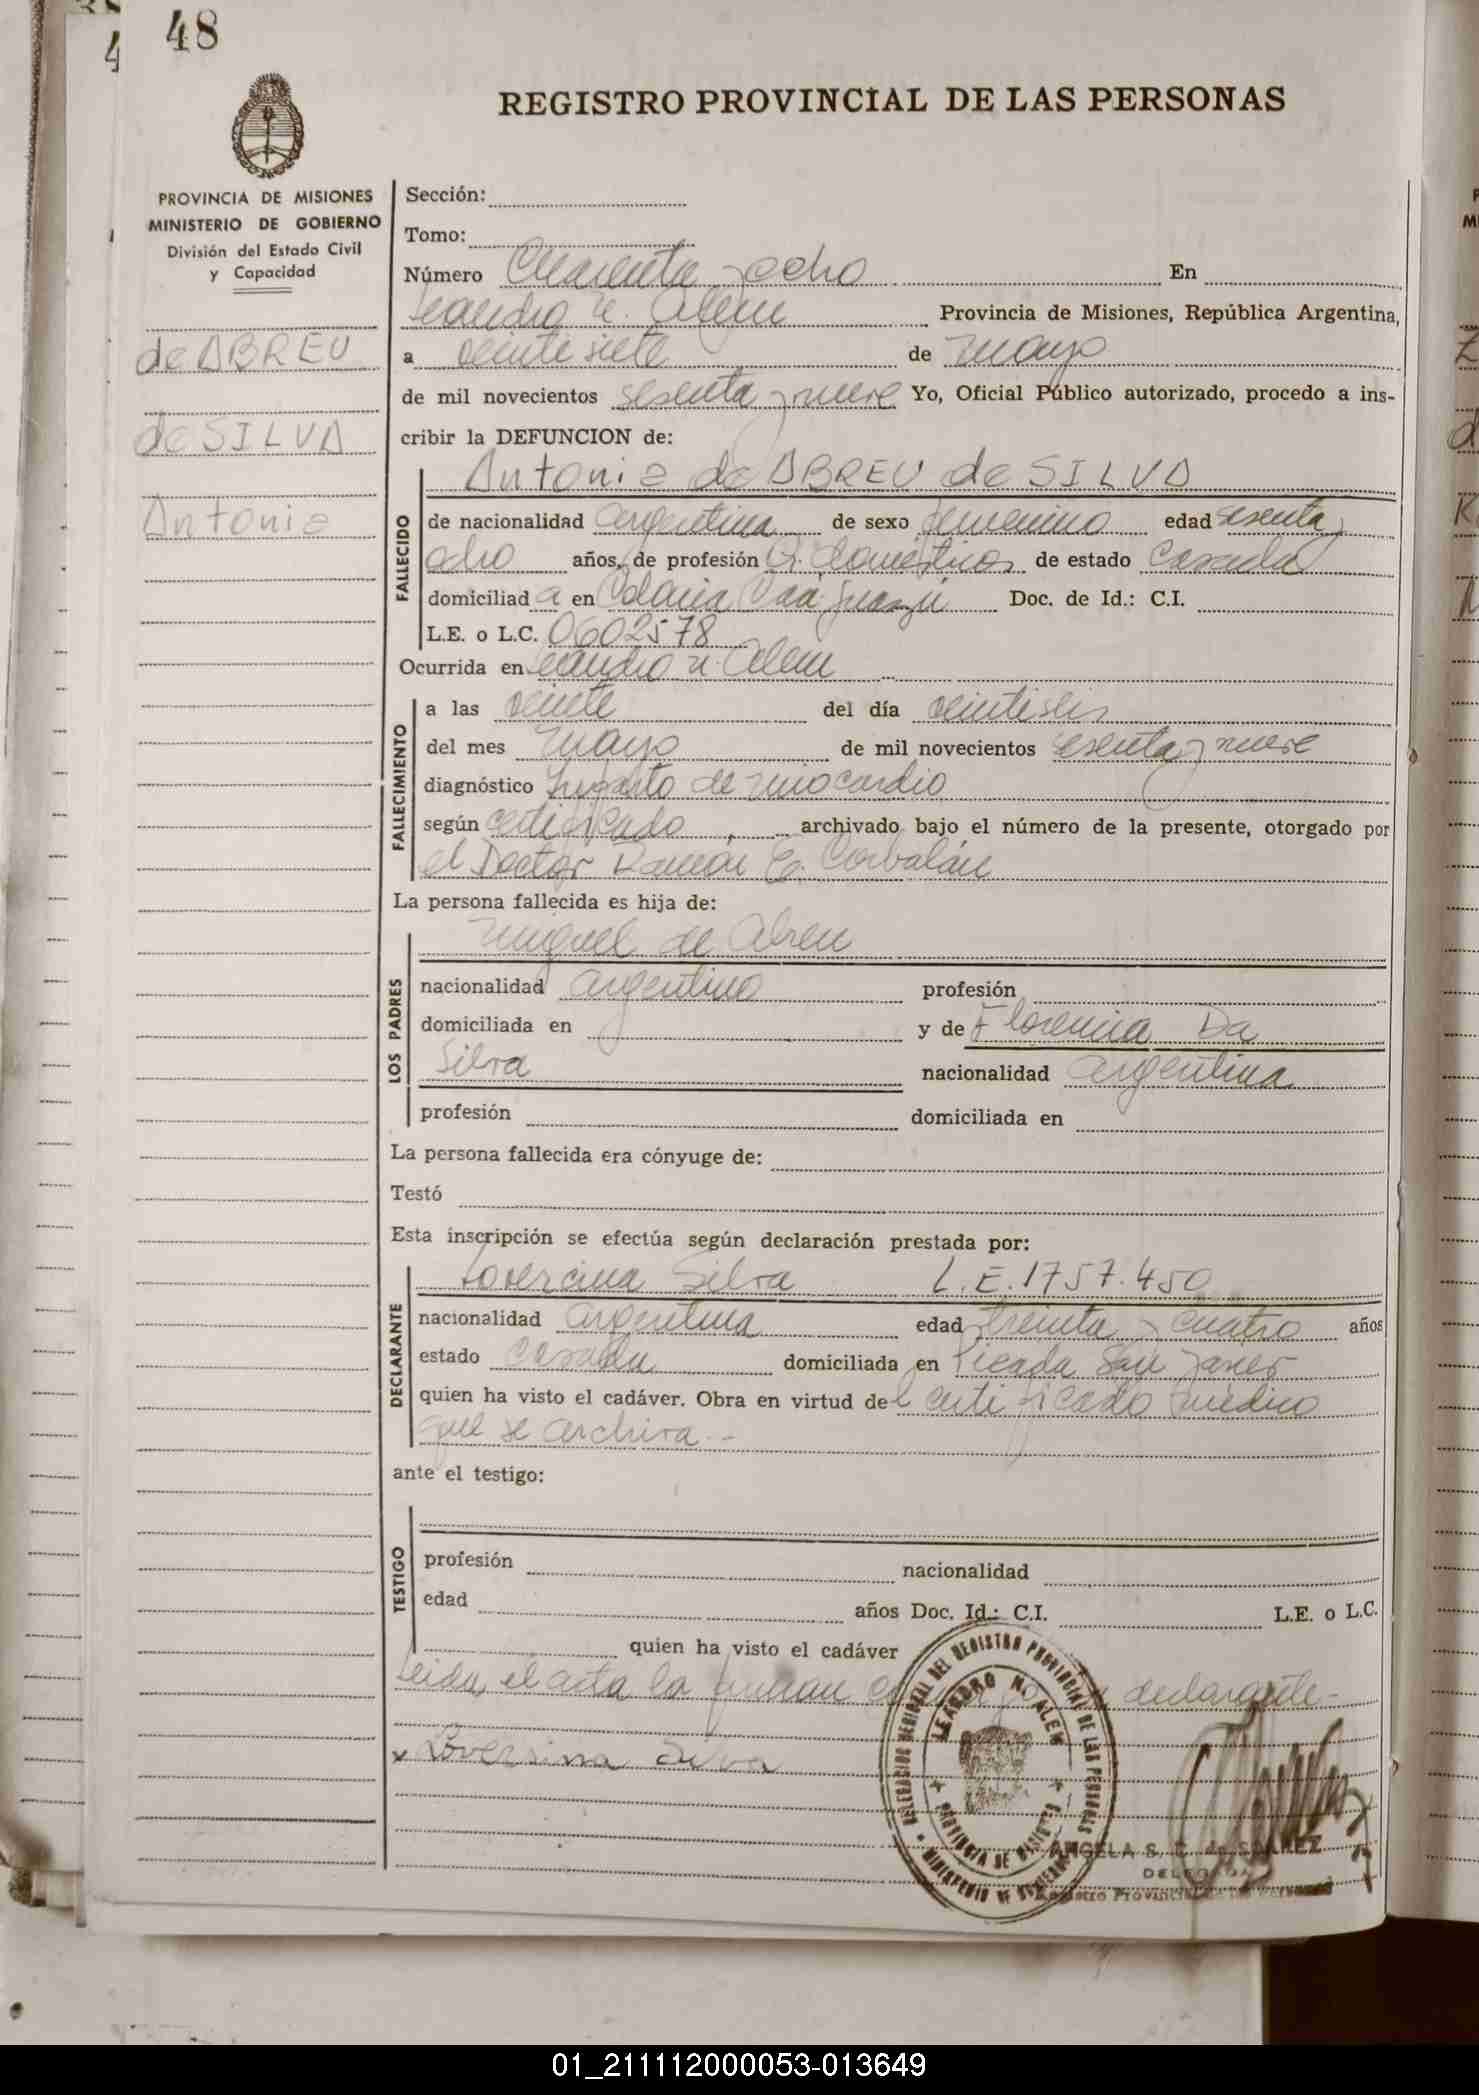 48
REGISTRO PROVINCIAL DE LAS PERSONAS
PROVINCIA DE MISIONES
MINISTERIO DE GOBIERNO
División del Estado Civil
y Capacidad
de ABREU
de SILVA
Antonia
Sección:
Tomo:
Número Cuarenta y ocho En
Leandro N. Alem Provincia de Misiones, República Argentina,
a veintisiete de mayo
de mil novecientos sesenta y nueve Yo, Oficial Público autorizado, procedo a ins-
cribir la DEFUNCION de:
Antonia de ABREU de SILVA
FALLECIDO
de nacionalidad argentina de sexo femenino edad sesenta y
ocho años, de profesión Q. domésticos de estado casada
domiciliada en Colonia Caá Guazú Doc. de Id.: C.I.
L.E. o L.C. 0602578
Ocurrida en Leandro N. Alem
FALLECIMIENTO
a las veinte del día veintiseis
del mes mayo de mil novecientos sesenta y nueve
diagnóstico Infarto de miocardio
según certificado, archivado bajo el número de la presente, otorgado por
el Doctor Ramón E. Corbalán
La persona fallecida es hija de:
LOS PADRES
Miguel de Abreu
nacionalidad argentino profesión
domiciliada en y de Florencia Da
Silva nacionalidad argentina
profesión domiciliada en
La persona fallecida era cónyuge de:
Testó
Esta inscripción se efectúa según declaración prestada por:
DECLARANTE
Lovercina Silva L.E. 1757.450
nacionalidad argentina edad treinta y cuatro años
estado casada domiciliada en Picada San Javier
quien ha visto el cadáver. Obra en virtud del certificado médico
que se archiva.-
ante el testigo:
TESTIGO
profesión nacionalidad
edad años Doc. Id.: C.I. L.E. o L.C.
quien ha visto el cadáver
Leida el acta la firman declarante-
x Loversina Silva
DELEGACION REGIONAL DEL REGISTRO PROVINCIAL DE LAS PERSONAS
LEANDRO N. ALEM
PROVINCIA DE MISIONES
MINISTERIO DE GOBIERNO
ANGELA S. de SUAREZ
DELEGADA
Registro Provincial de las Personas
01_211112000053-013649